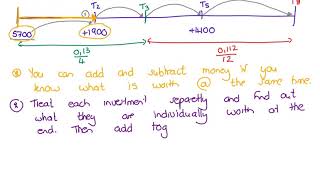 T2 T3 T5 T8
5700 +1900 +4400
0,13
4
0,112
12
You can add and subtract money if you
know what is worth @ the same time.
② Treat each investment separetly and find out
what they are individually worth at the
end. Then add tog